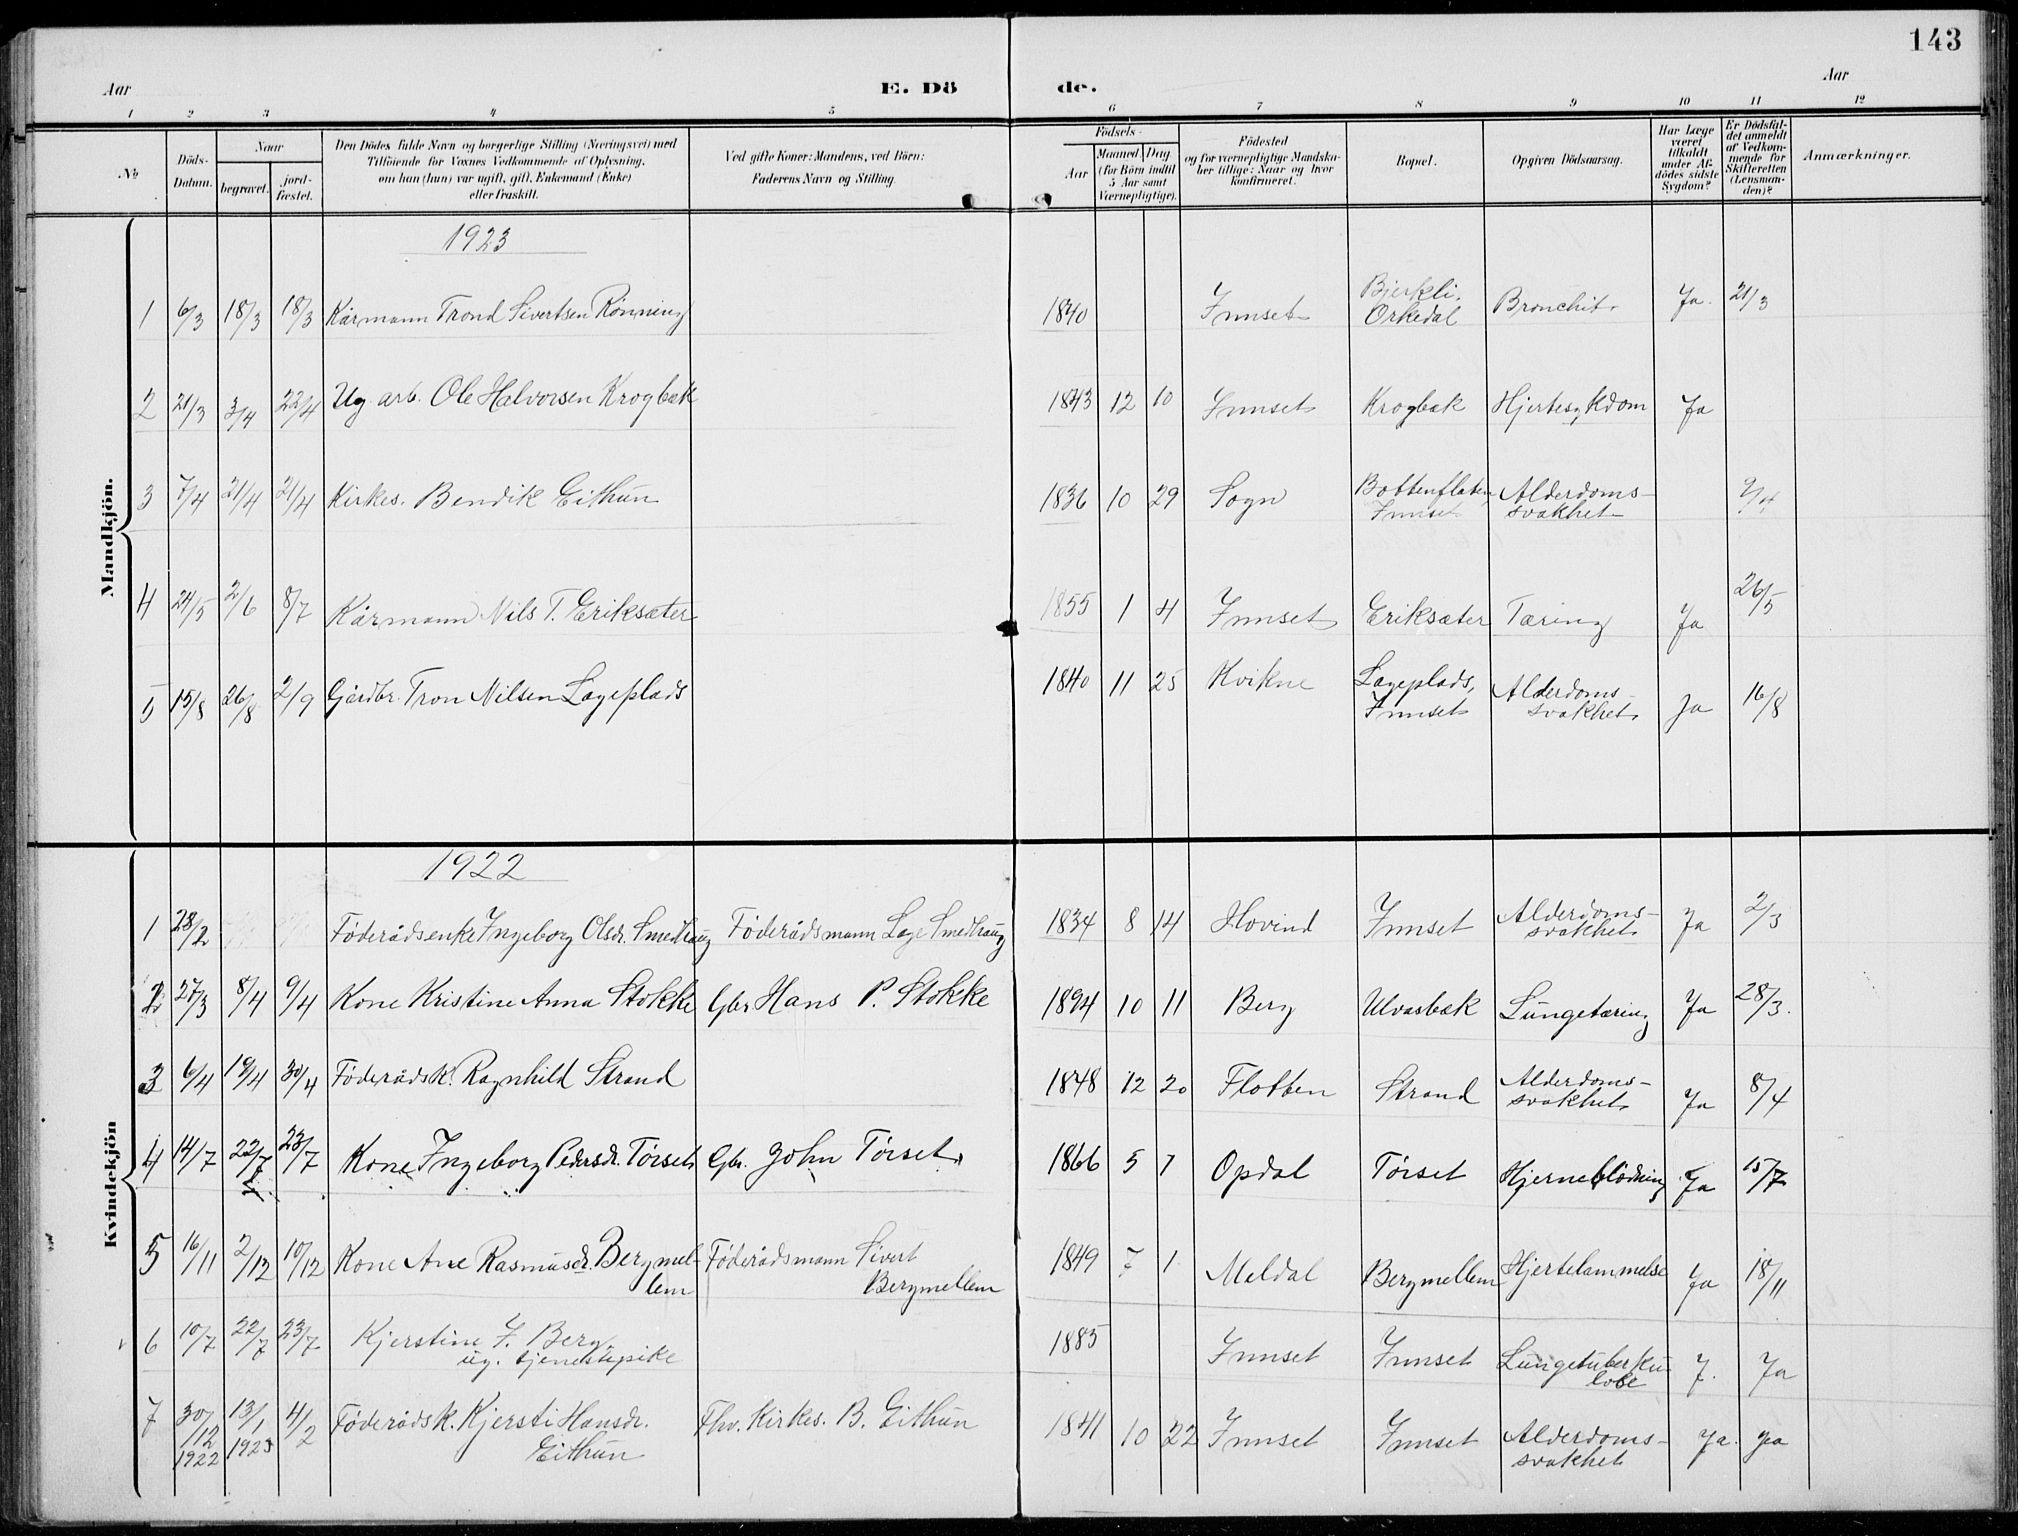 143
Aar
E. Dö
de.
Aar
1 2 3 4 5 6 7 8 9 10 11 12
No
Döds-
Datum.
Naar
begravet.
jord-
fæstet.
Den Dödes fulde Navn og borgerlige Stilling (Næringsvei) med
Tilföiende for Voxnes Vedkommende af Oplysning,
om han (hun) var ugift, gift, Enkemand (Enke)
eller fraskilt.
Ved gifte Koner: Mandens, ved Börn:
Faderens Navn og Stilling.
Födsels-
Aar
Maaned Dag
(for Börn indtil
5 Aar samt
Værnepligtige).
Födested
og for værnepligtige Mandska-
ber tillige: Naar og hvor
konfirmeret.
Bopæl.
Opgiven Dödsaarsag.
Har Læge
været
tilkaldt
under Af-
dödes sidste
Sygdom?
Er Dödsfal-
det anmeldt
af Vedkom-
mende for
Skifteretten
(Lensman-
den)?
Anmærkninger.
Mandkjön.
1923
1 6/3 18/3 18/3 Kårmann Trond Sivertsen Rönning 1840 Innset Bjerkli, Orkedal Bronchit. Ja. 21/3
2 21/3 3/4 22/4 Ug. arb. Ole Halvorsen Krogbæk 1843 12 10 Innset Krogbæk Hjertesykdom Ja
3 7/4 21/4 21/4 Kirkes. Bendik Eithun 1836 10 29 Sogn Bottenflaten, Innset Alderdoms-
svakhet 9/4
4 24/5 2/6 8/7 Kårmann Nils T. Eriksæter 1855 1 4 Innset Eriksæter Tæring Ja 26/5
5 15/8 26/8 2/9 Gårdbr. Tron Nilsen Lageplads 1840 11 25 Kvikne Lageplads, Innset Alderdoms-
svakhet Ja 16/8
Kvindekjön
1922
1 28/2 Föderådsenke Ingeborg Olsdr. Smedhaug Föderådsmann Lage Smedhaug 1834 8 14 Hovind Innset Alderdoms-
svakhet Ja 2/3
2 27/3 8/4 9/4 Kone Kristine Anna Stokke Gbr. Hans P. Stokke 1894 10 11 Berg Ulvasbæk Lungetæring Ja 28/3.
3 6/4 19/4 30/4 Föderådsk. Ragnhild Strand 1848 12 20 Flotten Strand Alderdoms-
svakhet Ja 8/4
4 14/7 22/7 23/7 Kone Ingeborg Pedersdr. Törset Gbr. John Törset 1866 5 7 Opdal Törset Hjerneblödning Ja 15/7
5 16/11 2/12 10/12 Kone Ane Rasmusdr. Bergmel-
lem Föderådsmann Sivert
Bergmellem 1849 7 1 Meldal Bergmellem Hjertelammelse Ja 18/11
6 10/7 22/7 23/7 Kjerstine I. Berg,
ug. tjenestepike 1885 Innset Innset Lungetuberku
lose J. Ja
7 30/12 1922 13/1 1923 4/2 Föderådsk. Kjersti Hansdr.
Eithun Fhv. Kirkes. B. Eithun 1841 10 22 Innset Innset Alderdoms-
svakhet Ja. Ja